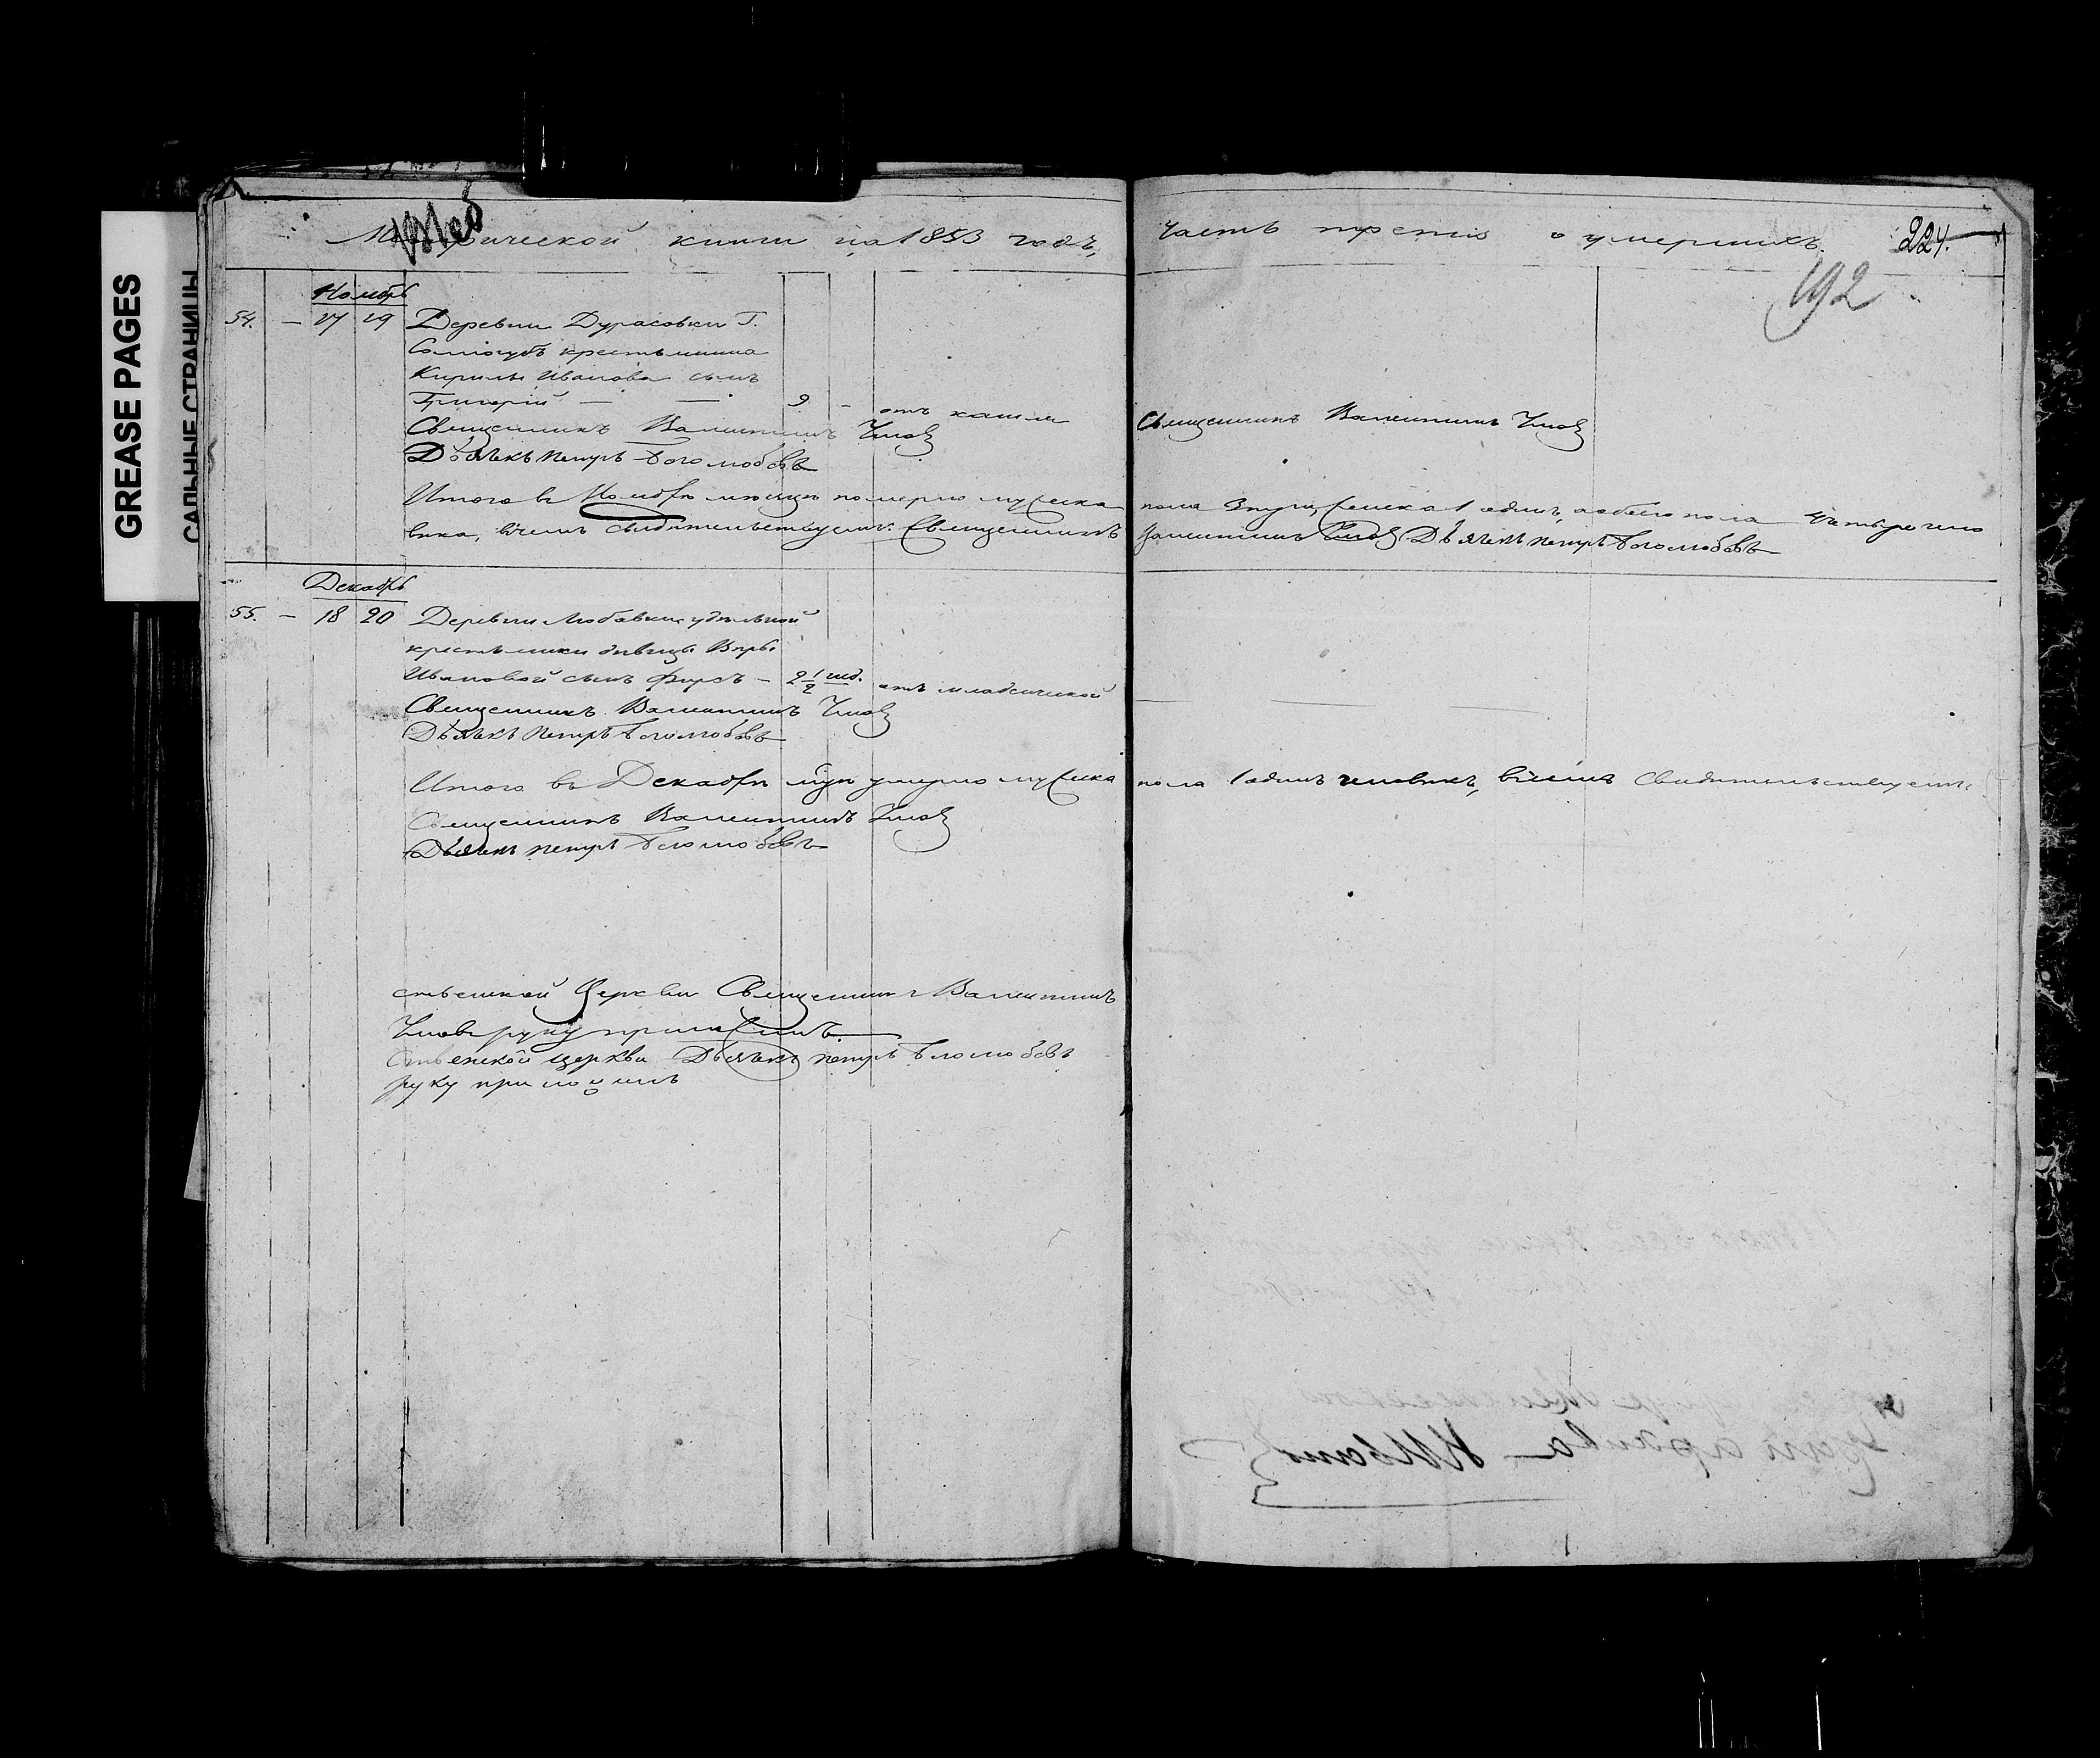 GREASE PAGES
САЛЬНЫЕ СТРАНИЦЫ
Метрической книги на 1853 годъ,
часть третія о умершихъ.
224.
192
Ноябрь
54. — 27 29 Деревни Дурасовки Г.
крестьянина
Кирилы Иванова сынъ
Григорій — — 9 — отъ кашля
Священникъ Валентинъ
Дьячекъ Петръ Боголюбовъ
Священникъ Валентинъ
Итого въ Ноябрѣ мѣсяцѣ померло мужеска пола 3 три, женска 1 одинъ, а обоего пола четыре чело
вѣка, въ чемъ свидѣтельствуемъ: Священникъ Валентинъ Дьячекъ Петръ Боголюбовъ
Декабрь
55. — 18 20 Деревни Любавки удѣльной
крестьянки дѣвицы Вѣры
Ивановой сынъ Фирсъ — 2 1/2 нед. отъ младенческой
Священникъ Валентинъ
Дьячекъ Петръ Боголюбовъ
Итого въ Декабрѣ мцѣ умерло мужеска пола 1 одинъ человѣкъ, въ чемъ свидѣтельствуемъ:
Священникъ Валентинъ
Дьячекъ Петръ Боголюбовъ
ственской Церкви Священникъ Валентинъ
руку приложилъ.
ственской церкви Дьячекъ Петръ Боголюбовъ
руку приложилъ